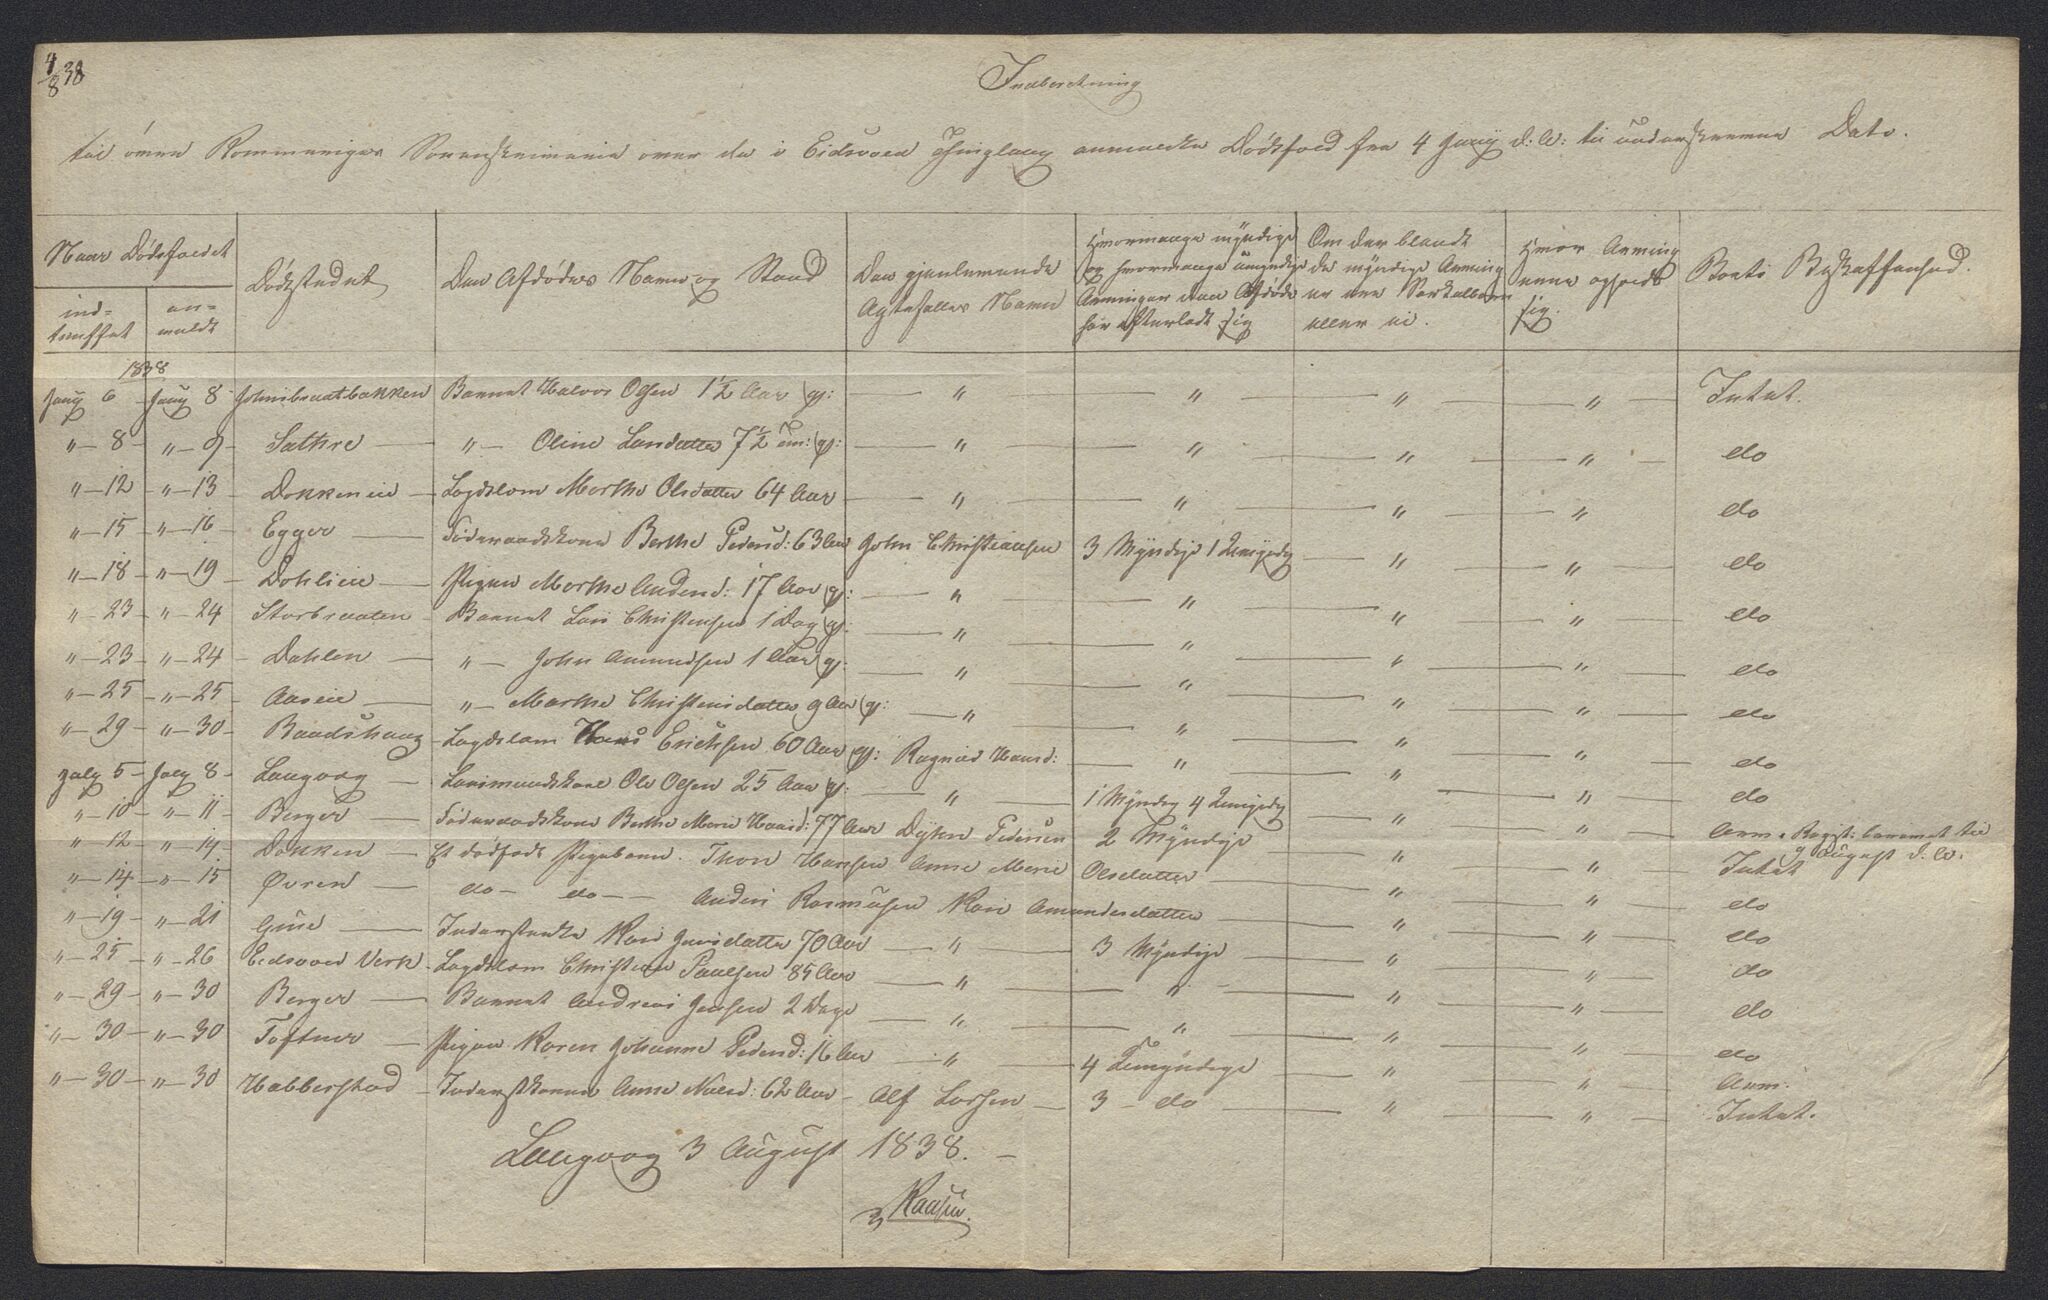 4/8 38
Indberetning
til övre Rommeriges Sorenskriverie over de i Eidsvold Thinglaug anmeldte Dödsfald fra 4 Juny d: A: til underskrevne Dato.
Naar Dödsfaldet
ind-
truffet
an-
meldt
Dödstedet
Den Afdödes Navn og Stand
Den gjenlevende
Ægtefælles Navn
Hvormange myndige
og hvormange umyndige
Arvinger den Afdöde
har efterladt sig
Om der blandt
de myndige Arving
er
eller ei.
Hvor Arving
erne opholde
sig.
Boets Beskaffenhed.
1838
Juny 6 - Juny 8 - Johnsbraatbakken Barnet Halvor Olsen 1½ Aar gf: — " — " — " — " — Intet.
" - 8 - " - 9 - Sathre — " — Oline Larsdatter 7½ gf: — " — " — " — " — do
" - 12 - " - 13 - Dokkeneie — Lægdslem Marthe Olsdatter 64 Aar — " — " — " — " do
" - 15 - " - 16 - Egger — Föderaadskone Berthe Pedersd: 63 Aar John Christiansen 3 Myndige 1 Umyndig — " — " — do
" - 18 - " - 19 - Dohlieie — Pigen Marthe Andersd: 17 Aar gf: — " — " — " — " — do
" - 23 - " - 24 Storbraaten — Barnet Lars Christensen 1 Dag gf: — " — " — " — " — do
" - 23 - " - 24 - Dahlen — " — John Amundsen 1 Aar gf: — " — " — " — " — do
" - 25 - " - 25 - Aaseie — " — Marthe Christensdatter 9 Aar gf: — " — " — " — " — do
" - 29 - " - 30 - Baadshaug - Lægdslem Hans Erichsen 60 Aar gf: Ragnild Hansd: — " — " — " — do
July 5 - July 8 - Langvag — Ole Olsen 25 Aar gf: — " — 1 Myndig 4 Umyndig " — " — do
" - 10 - " - 11 - Berger — Föderaadskone Berthe Marie Hansd: 77 Aar Dyhre Pedersen 2 Myndige — " — " — Arv. Regist: berammet til
9 August d. A.
" - 12 - " - 14 - Dokken — Et dödfödt Pigebarn. Thore Hansen Anne Marie Olsdatter — " — " — Intet
" - 14 - " - 15 Övren — do — do — Anders Rasmusen Kari Amundsdatter — " — " — do
" - 19 - " - 21 — Inderstenke Kari Jensdatter 70 Aar — " — 3 Myndige — " — " — do
" - 25 - " - 26 Eidsvold Verk - Lægdslem Christian Paulsen 85 Aar — " — " — " — " — do
" - 29 - " - 30 Berger — Barnet Andreas Jensen 2 Dage — " — " — " — " — do
" - 30 - " - 30 - Toftner — Pigen Karen Johanne Pedersd: 16 Aar — " — 4 Umyndige — " — " — do
" - 30 - " - 30 Habberstad - Inderstkonen Anne Nielsd: 62 Aar - Alf Larsen — 3 - do — " — " — Intet.
Langvag 3 August 1838.
Raasen.